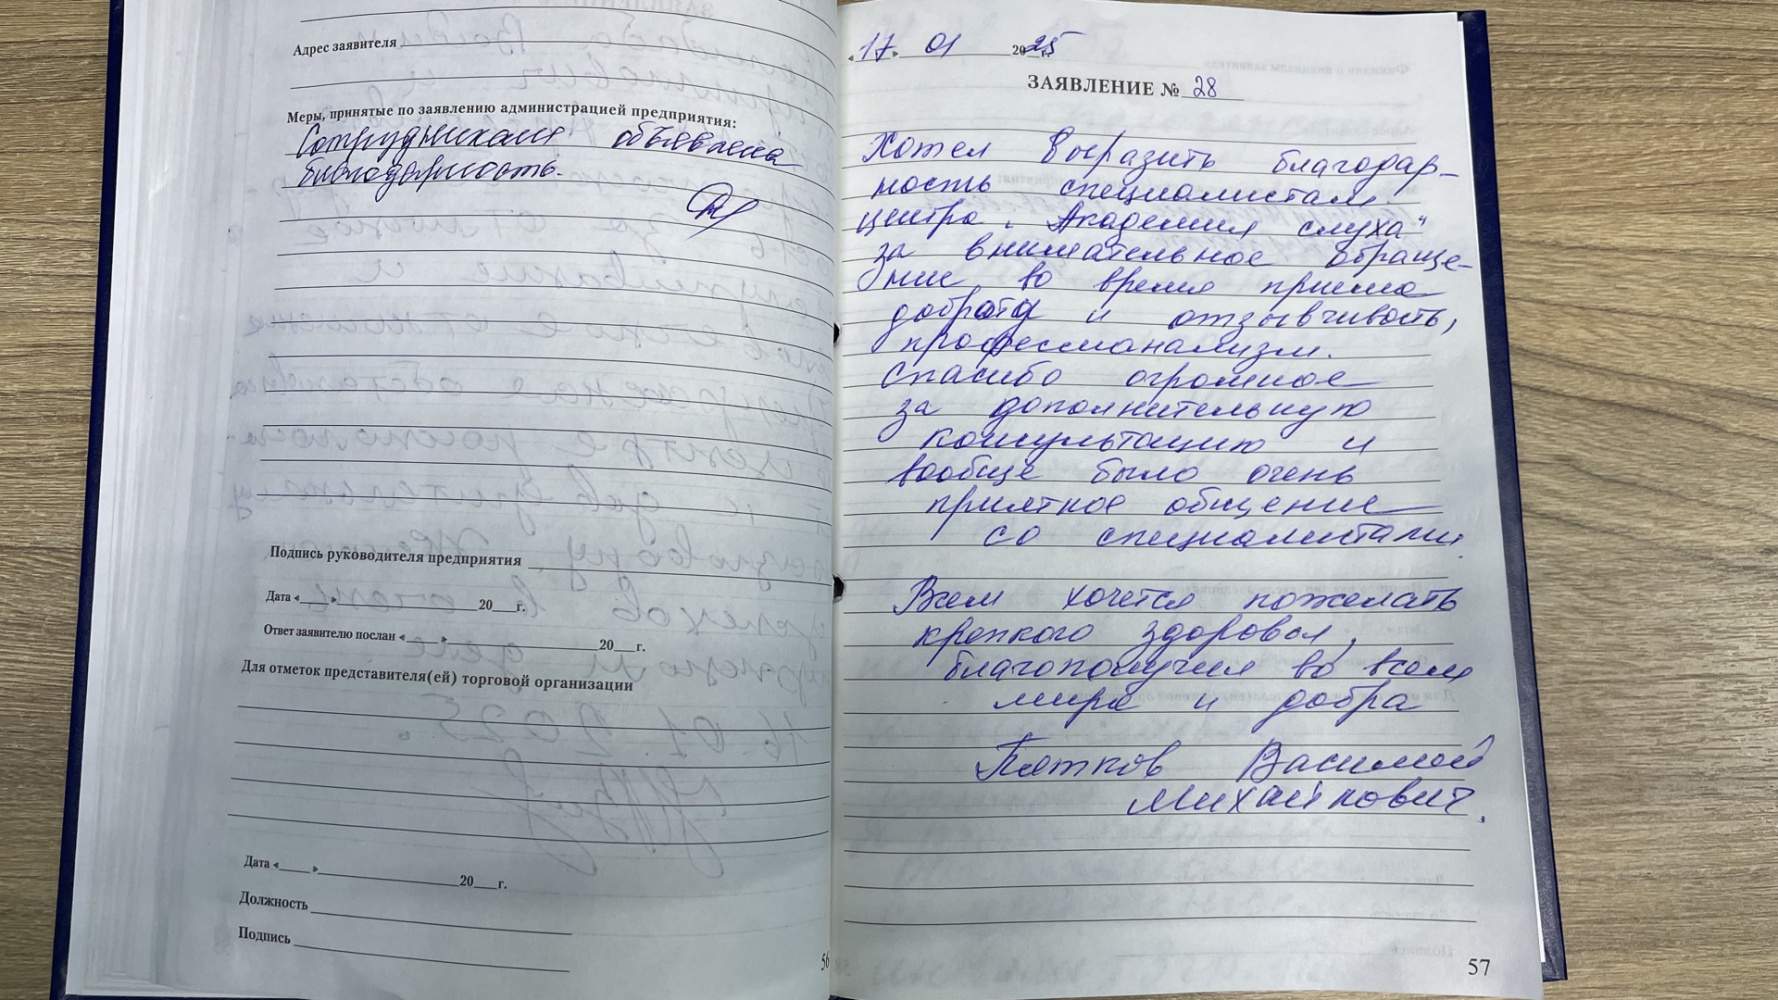 Адрес заявителя
Меры, принятые по заявлению администрацией предприятия:
Сотрудникам объявлена
благодарность.
Подпись руководителя предприятия
Дата « » 20 г.
Ответ заявителю послан « » 20 г.
Для отметок представителя(ей) торговой организации
Дата « » 20 г.
Должность
Подпись
56
«17» 01 2025
ЗАЯВЛЕНИЕ № 28
Хотел выразить благодар-
ность специалистам
центра „Академия слуха"
за внимательное обраще-
ние во время приема
доброта и отзывчивость,
професманализм.
Спасибо огромное
за дополнительную
консультацию и
вообще было очень
приятное общение
со специалистами.
Всем хочется пожелать
крепкого здоровья,
благополучия во всем
мира и добра
Пятков Василий
Михайлович.
57